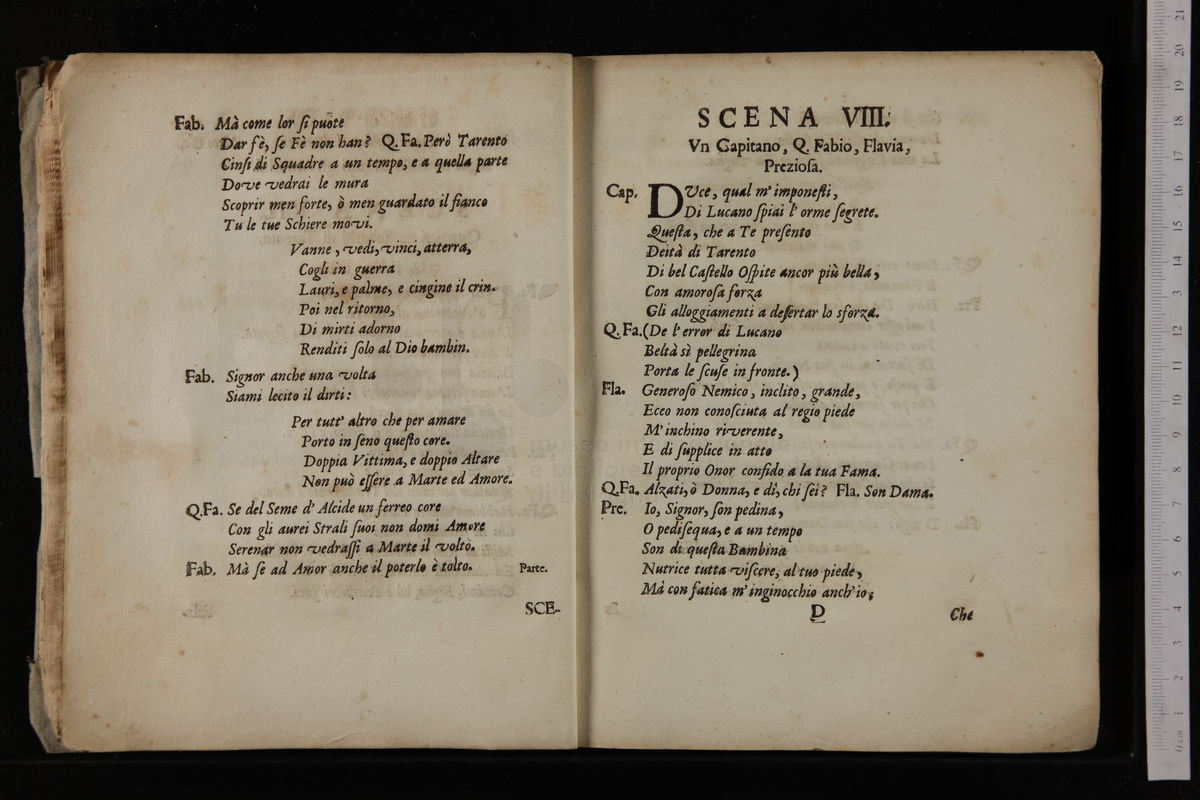 Fab. Mà come lor ſi puòte
Dar fè, ſe Fè non han? Q.Fa. Però Tarento
Cinſi di Squadre a un tempo, e a quella parte
Dove vedrai le mura
Scoprir men forte, ò men guardato il fianco
Tu le tue Schiere movi.
Vanne, vedi, vinci, atterra,
Cogli in guerra
Lauri, e palme, e cingine il crin.
Poi nel ritorno,
Di mirti adorno
Renditi ſolo al Dio bambin.
Fab. Signor anche una volta
Siami lecito il dirti:
Per tutt' altro che per amare
Porto in ſeno queſto core.
Doppia Vittima, e doppio Altare
Non può eſſere a Marte ed Amore.
Q.Fa. Se del Seme d' Alcide un ferreo core
Con gli aurei Strali ſuoi non domi Amore
Serenar non vedraſſi a Marte il volto.
Fab. Mà ſe ad Amor anche il poterlo è tolto. Parte.
SCE-
SCENA VIII.
Vn Capitano, Q. Fabio, Flavia,
Prezioſa.
Cap. DVce, qual m' imponeſti,
Di Lucano ſpiai l' orme ſegrete.
Queſta, che a Te preſento
Deità di Tarento
Di bel Caſtello Oſpite ancor più bella,
Con amoroſa forza
Gli alloggiamenti a deſertar lo sforza.
Q. Fa. (De l' error di Lucano
Beltà sì pellegrina
Porta le ſcuſe in fronte.)
Fla. Generoſo Nemico, inclito, grande,
Ecco non conoſciuta al regio piede
M' inchino riverente,
E di ſupplice in atto
Il proprio Onor confido a la tua Fama.
Q.Fa. Alzati, ò Donna, e dì, chi ſei? Fla. Son Dama.
Pre. Io, Signor, ſon pedina,
O pediſequa, e a un tempo
Son di queſta Bambina
Nutrice tutta viſcere, al tuo piede,
Mà con fatica m' inginocchio anch' io;
D
Che